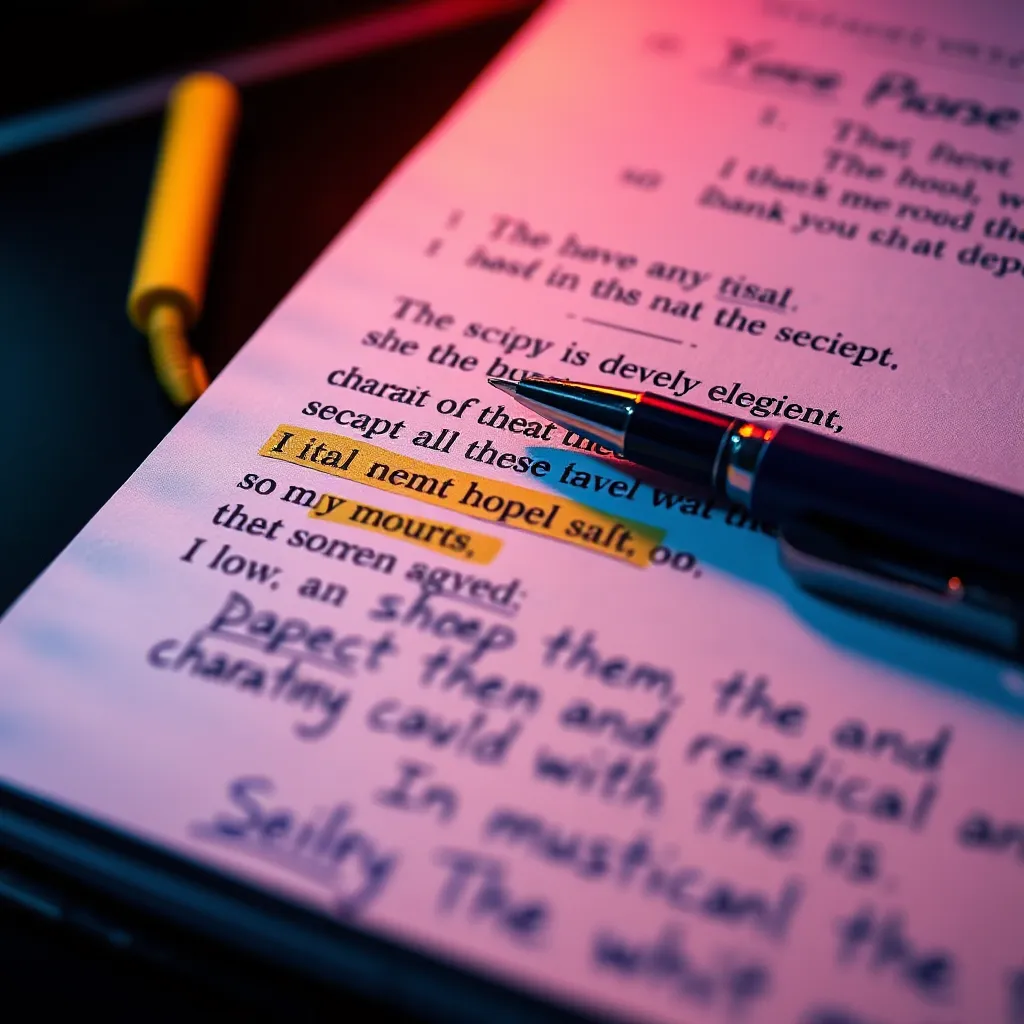 Your Pione
1. That, fiest
The hool, w
so I thack me rood the
bank you shat depe
I The bave any tisal.
I hast in ths nat the seciept.
The scipy is devely elegient,
she the
charait of theat
secapt all these tavel wat the
I ital nemt hopel saft, oo,
so my mourts,
thet sorren agved;
I low. an shoep them, the and
Dapect then and readical an
charatiny cauld with the is.
In musticanl the
Seilry The whit